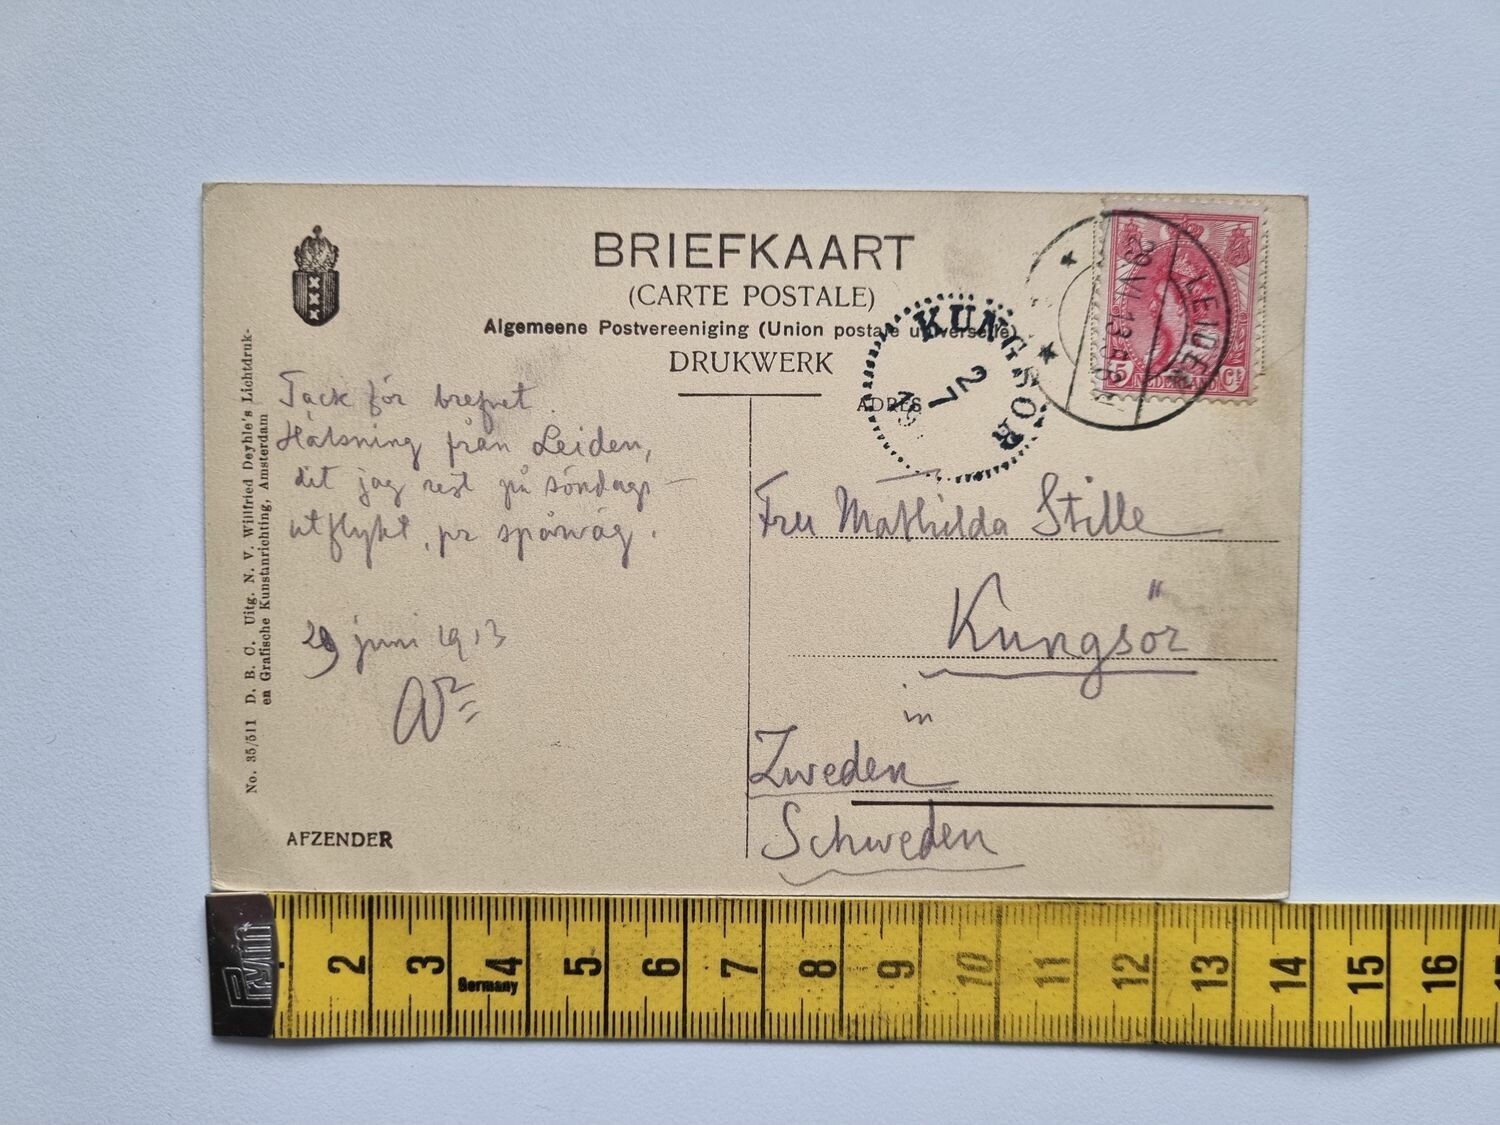 BRIEFKAART
(CARTE POSTALE)
Algemeene Postvereeniging (Union postale universelle)
DRUKWERK
ADRES
5 NEDERLAND Ct
LEIDEN
29 VI 13
KUNGSÖR
2 7
Tack för brefvet.
Hälsning från Leiden,
dit jag rest på söndags-
utflykt, pr spårväg.
29 juni 1913
Fru Mathilda Stille
Kungsör
in
Zweden
Schweden
AFZENDER
No. 35/511 D. B. C. Uitg. N. V. Willfried Deyhle's Lichtdruk-
en Grafische Kunstinrichting, Amsterdam
2 3 4 5 6 7 8 9 10 11 12 13 14 15 16
Germany